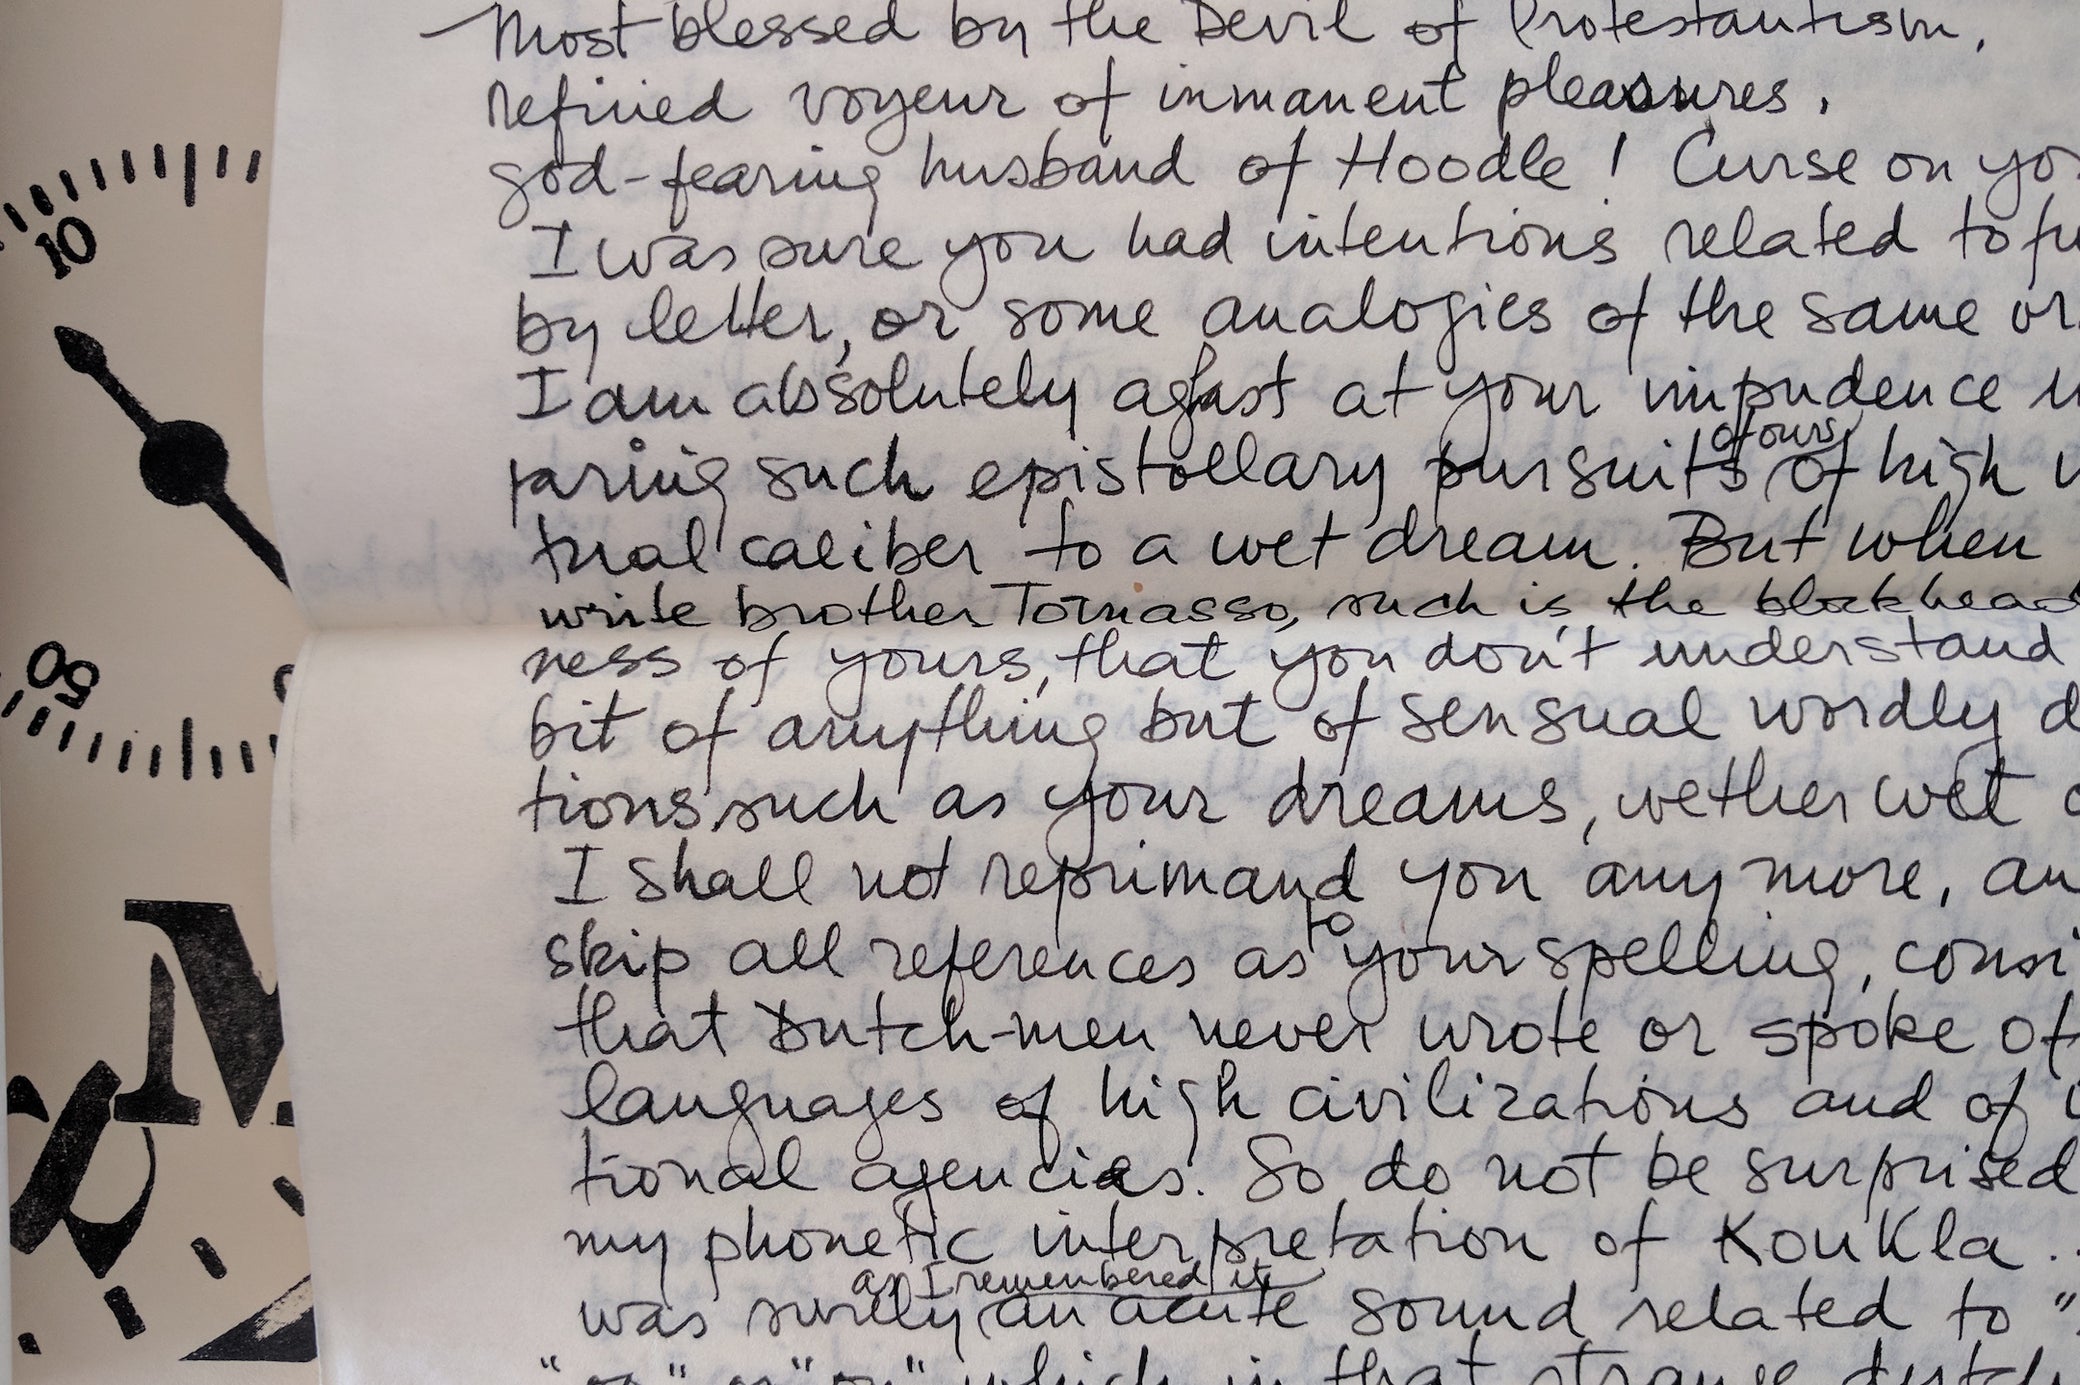 Most blessed by the Devil of Protestantism,
refined voyeur of inmanent pleasures,
god-fearing husband of Hoodle! Curse on yo
I was sure you had intentions related to fu
by letter, or some analogies of the same or
I am absolutely aghast at your impudence
paring such epistollary pursuits of ours of high
tual caliber to a wet dream. But when
write brother Tomasso, such is the blockhead
ness of yours, that you don't understand
bit of anything but of sensual wordly d
tions such as your dreams, wether wet
I shall not reprimand you any more, an
skip all references as to your spelling, consi
that Dutch-men never wrote or spoke of
languages of high civilizations and of i
tional agencies. So do not be surprised
my phonetic interpretation of KouKla..
as I remembered it
was surely an acute sound related to "
which in that strange dutch
10
50
M